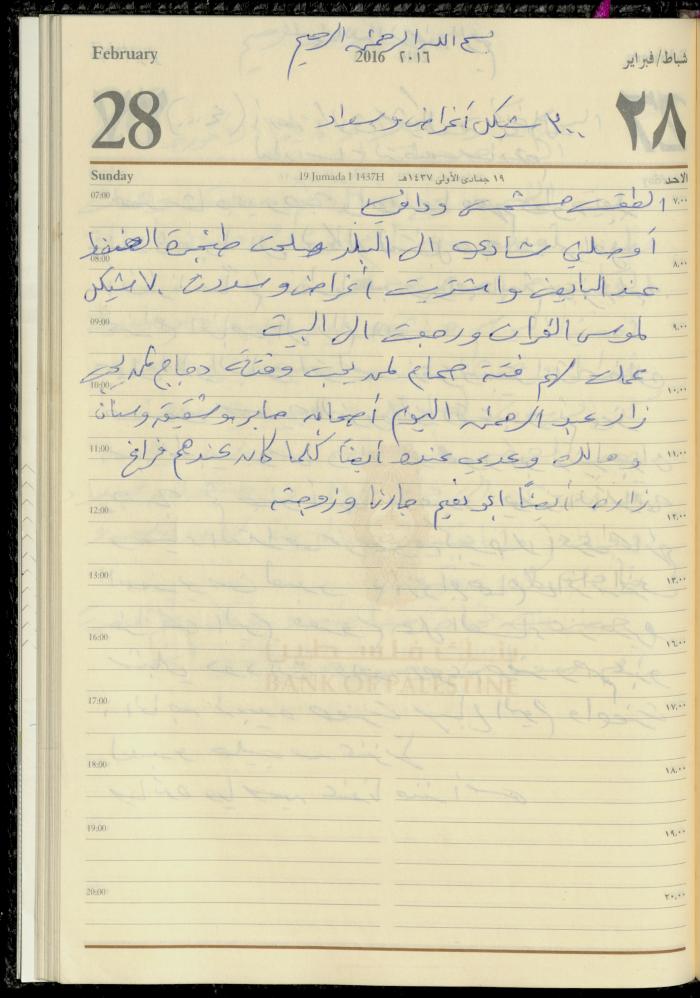 بسم الله الرحمن الرحيم
February 2016 ٢٠١٦ شباط/فبراير
28 ٢٨
٣٠٠ شيكل أغراض وسداد
Sunday 19 Jumada I 1437H ١٩ جمادى الأولى ١٤٣٧هـ الاحد
07:00 ٧.٠٠
الطقس مشمس ودافئ
أوصلني شادي الى البلد صلحت طنجرة الضغط
08:00 ٨.٠٠
عند البايض واشتريت أغراض وسددت ٧٠ شيكل
09:00 ٩.٠٠
لموسى الفران ورجعت الى البيت
عملت لهم فتة حمام وفتة دجاج
10:00 ١٠.٠٠
زار عبد الرحمن اليوم أصحابه صابر وشقيق وسنان
11:00 ١١.٠٠
ومالك وعدي عنده أيضاً كلما كان عندهم فراغ
زاره أيضاً ابو نعيم جارنا وزوجته
12:00 ١٢.٠٠
13:00 ١٣.٠٠
16:00 ١٦.٠٠
بنك فلسطين
BANK OF PALESTINE
17:00 ١٧.٠٠
18:00 ١٨.٠٠
19:00 ١٩.٠٠
20:00 ٢٠.٠٠